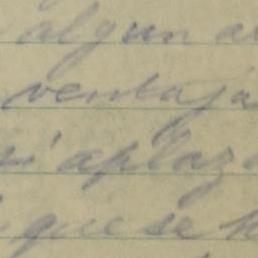 algun a
ventaja
si aplaz
que se h